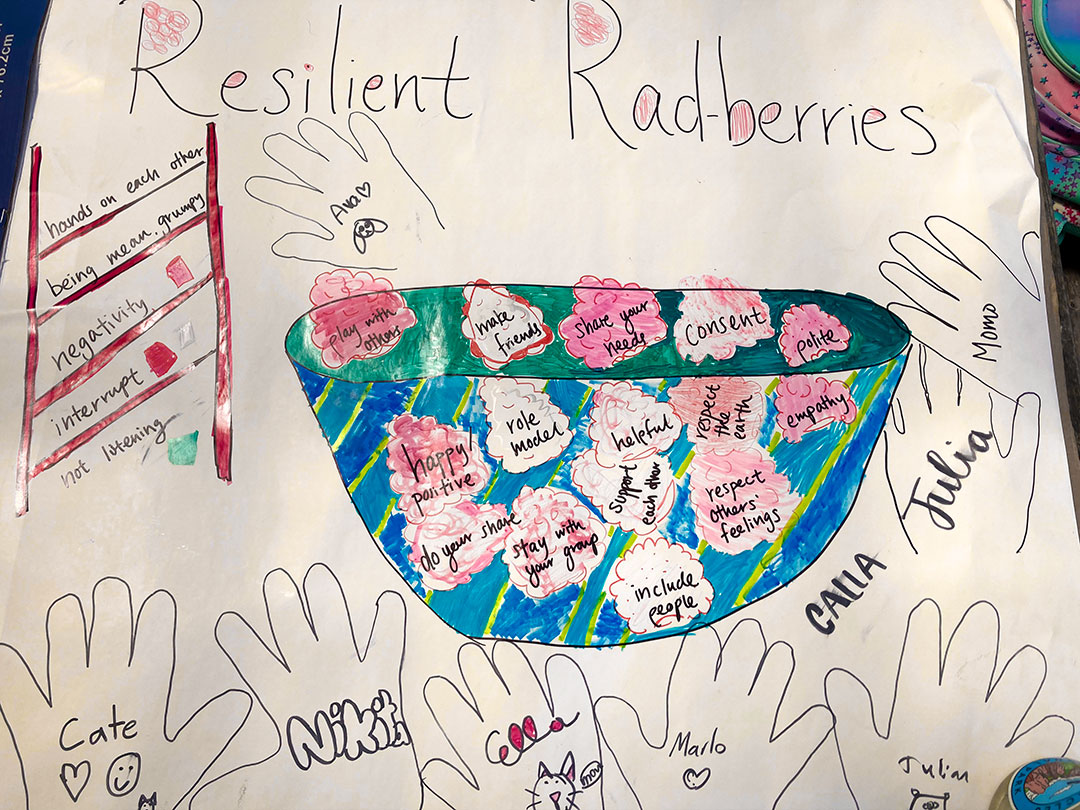 Resilient Rad-berries
hands on each other
being mean, grumpy
negativity
interrupt
not listening
Ava
play with
others
make
friends
share your
needs
consent
polite
happy!
positive
role
model
helpful
respect
the
earth
empathy
support
each other
respect
others
feelings
do your share
stay with
your group
include
people
Momo
Julia
CAllA
Cate
NiKita
Ella
meow
Marlo
Julian